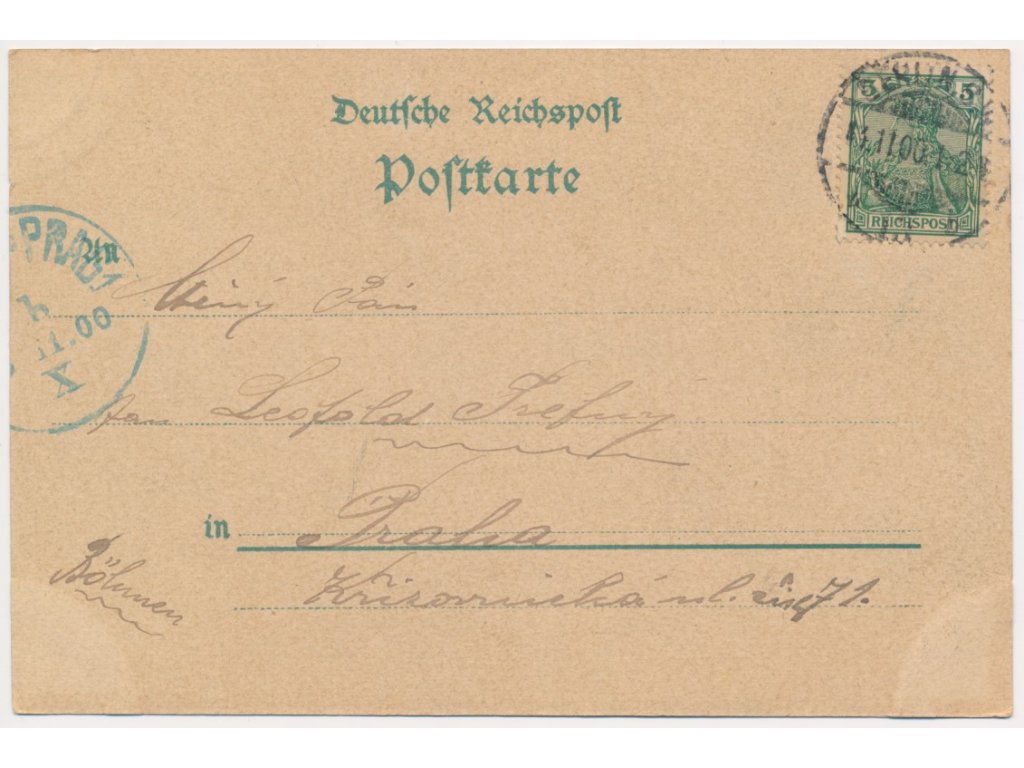 Deutsche Reichspost
Postkarte
5 5
11.00
REICHSPOST
PRAG 1
An
11.00
X
Pán
pan Leopold
in Praha
Böhmen
Křižovnická ul. čís. 71.